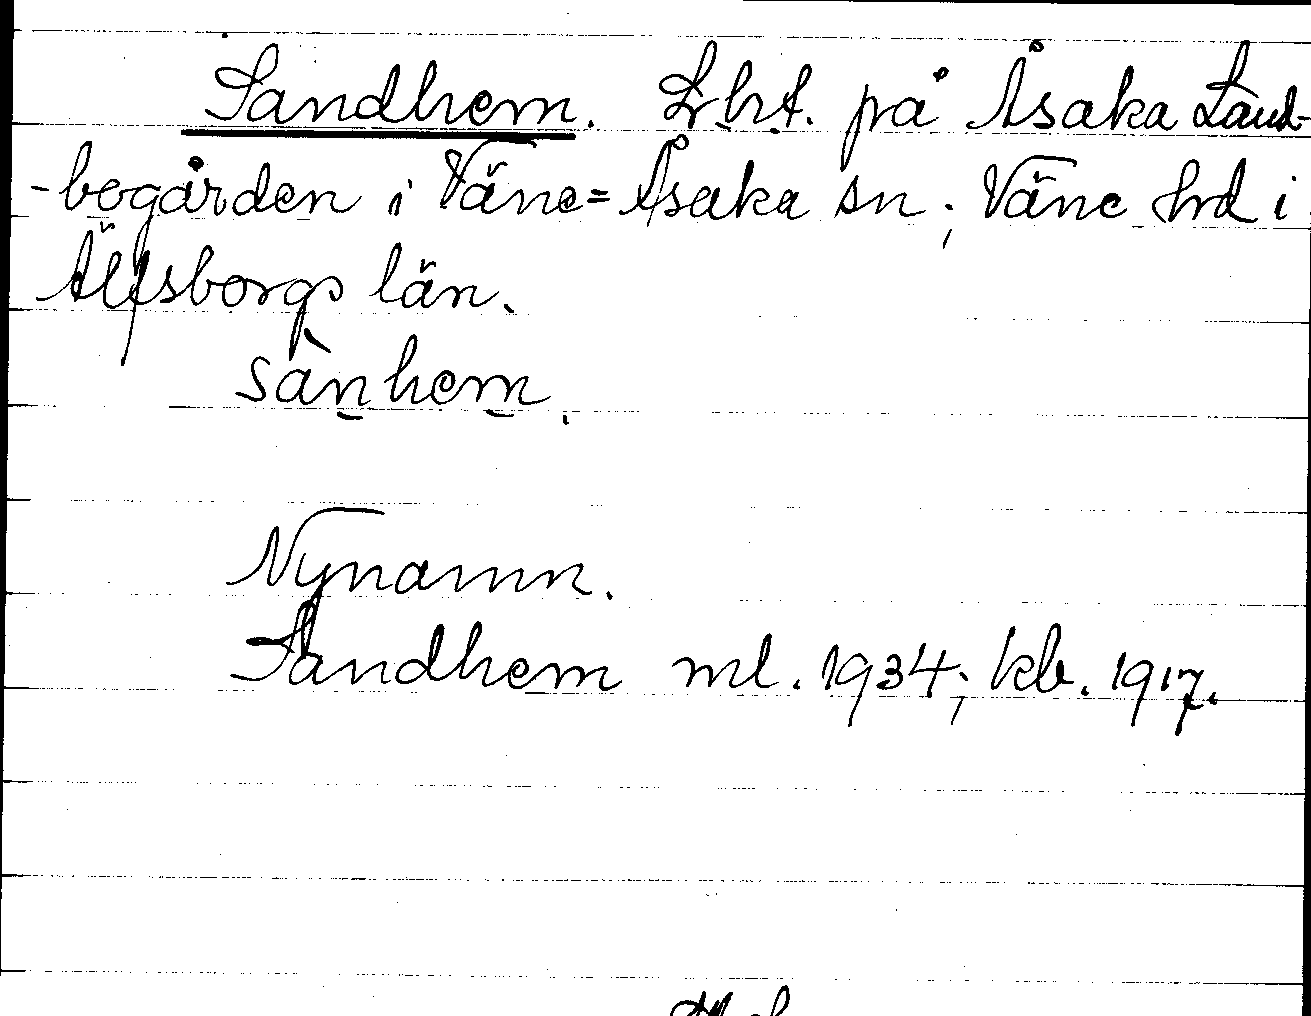 Sandhem. Lht. på Åsaka Land-
-bogården i Väne=Åsaka sn; Väne hrd i
Älfsborgs län.
sànhem.
Nynamn.
Sandhem ml. 1934; kb. 1917.